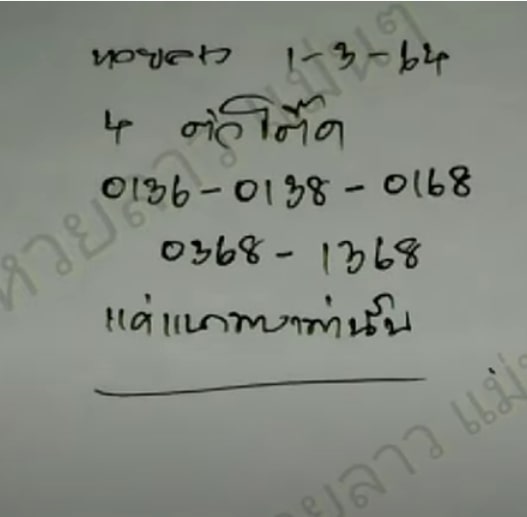 หวยลาว 1-3-64
4 ตัวโต๊ด
0136-0138-0168
0368-1368
แค่แนวทางเท่านั้น
หวยลาว แม่นๆ
หวยลาว แม่น